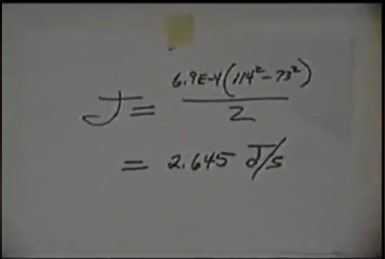 J = 6.9E-4(114² - 73²)
2
= 2.645 J/s